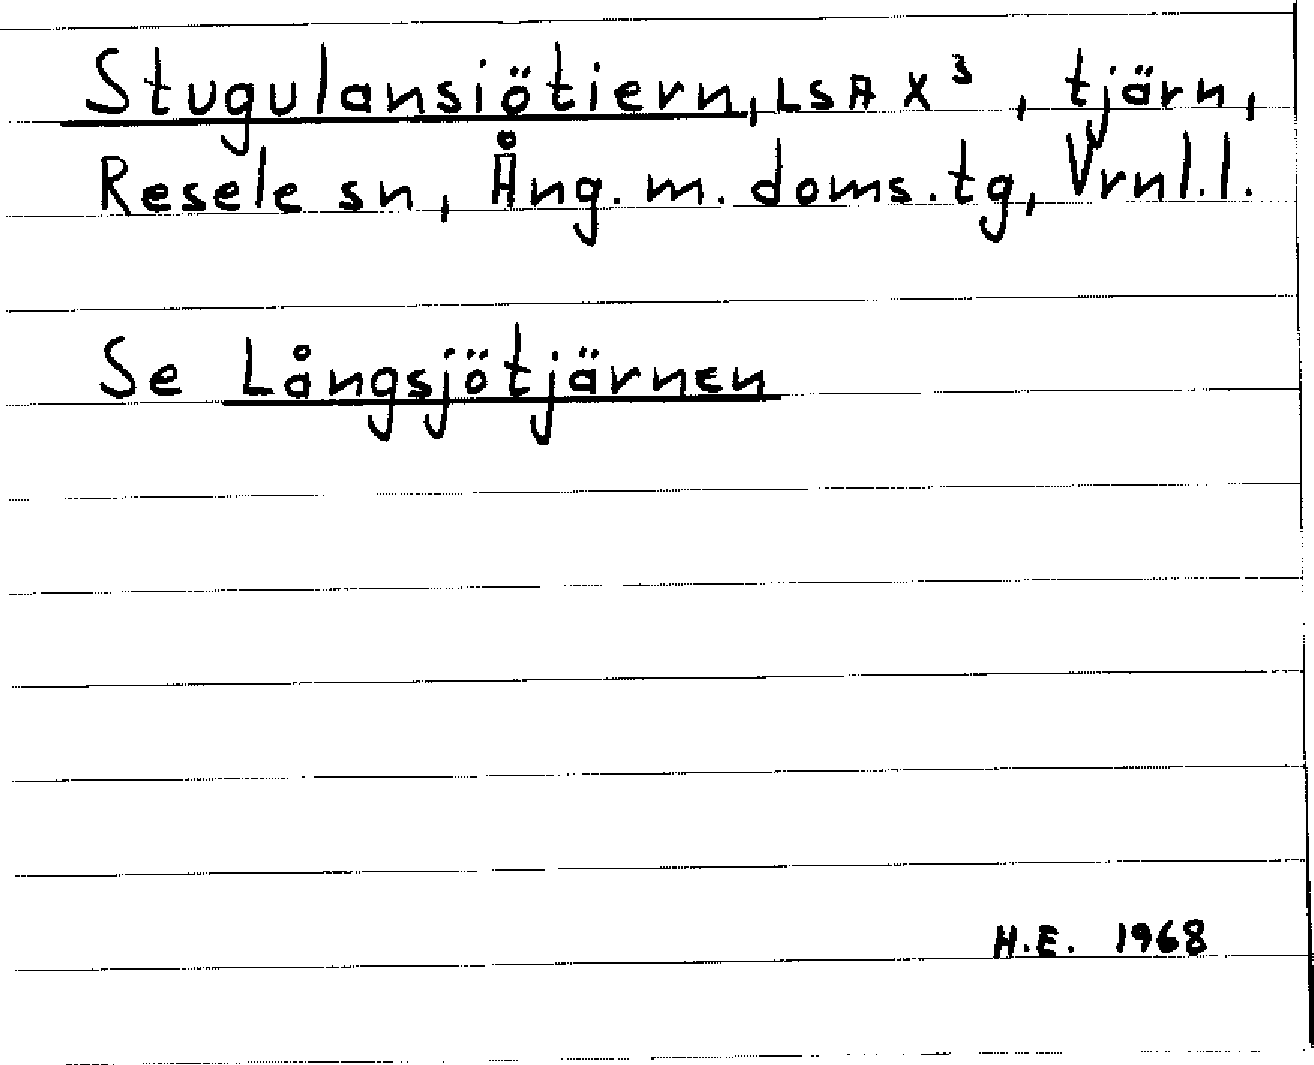 Stugulansiötiern, LSA X³, tjärn,
Resele sn, Ång. m. doms.tg, Vrnl.l.
Se Långsjötjärnen
H.E. 1968